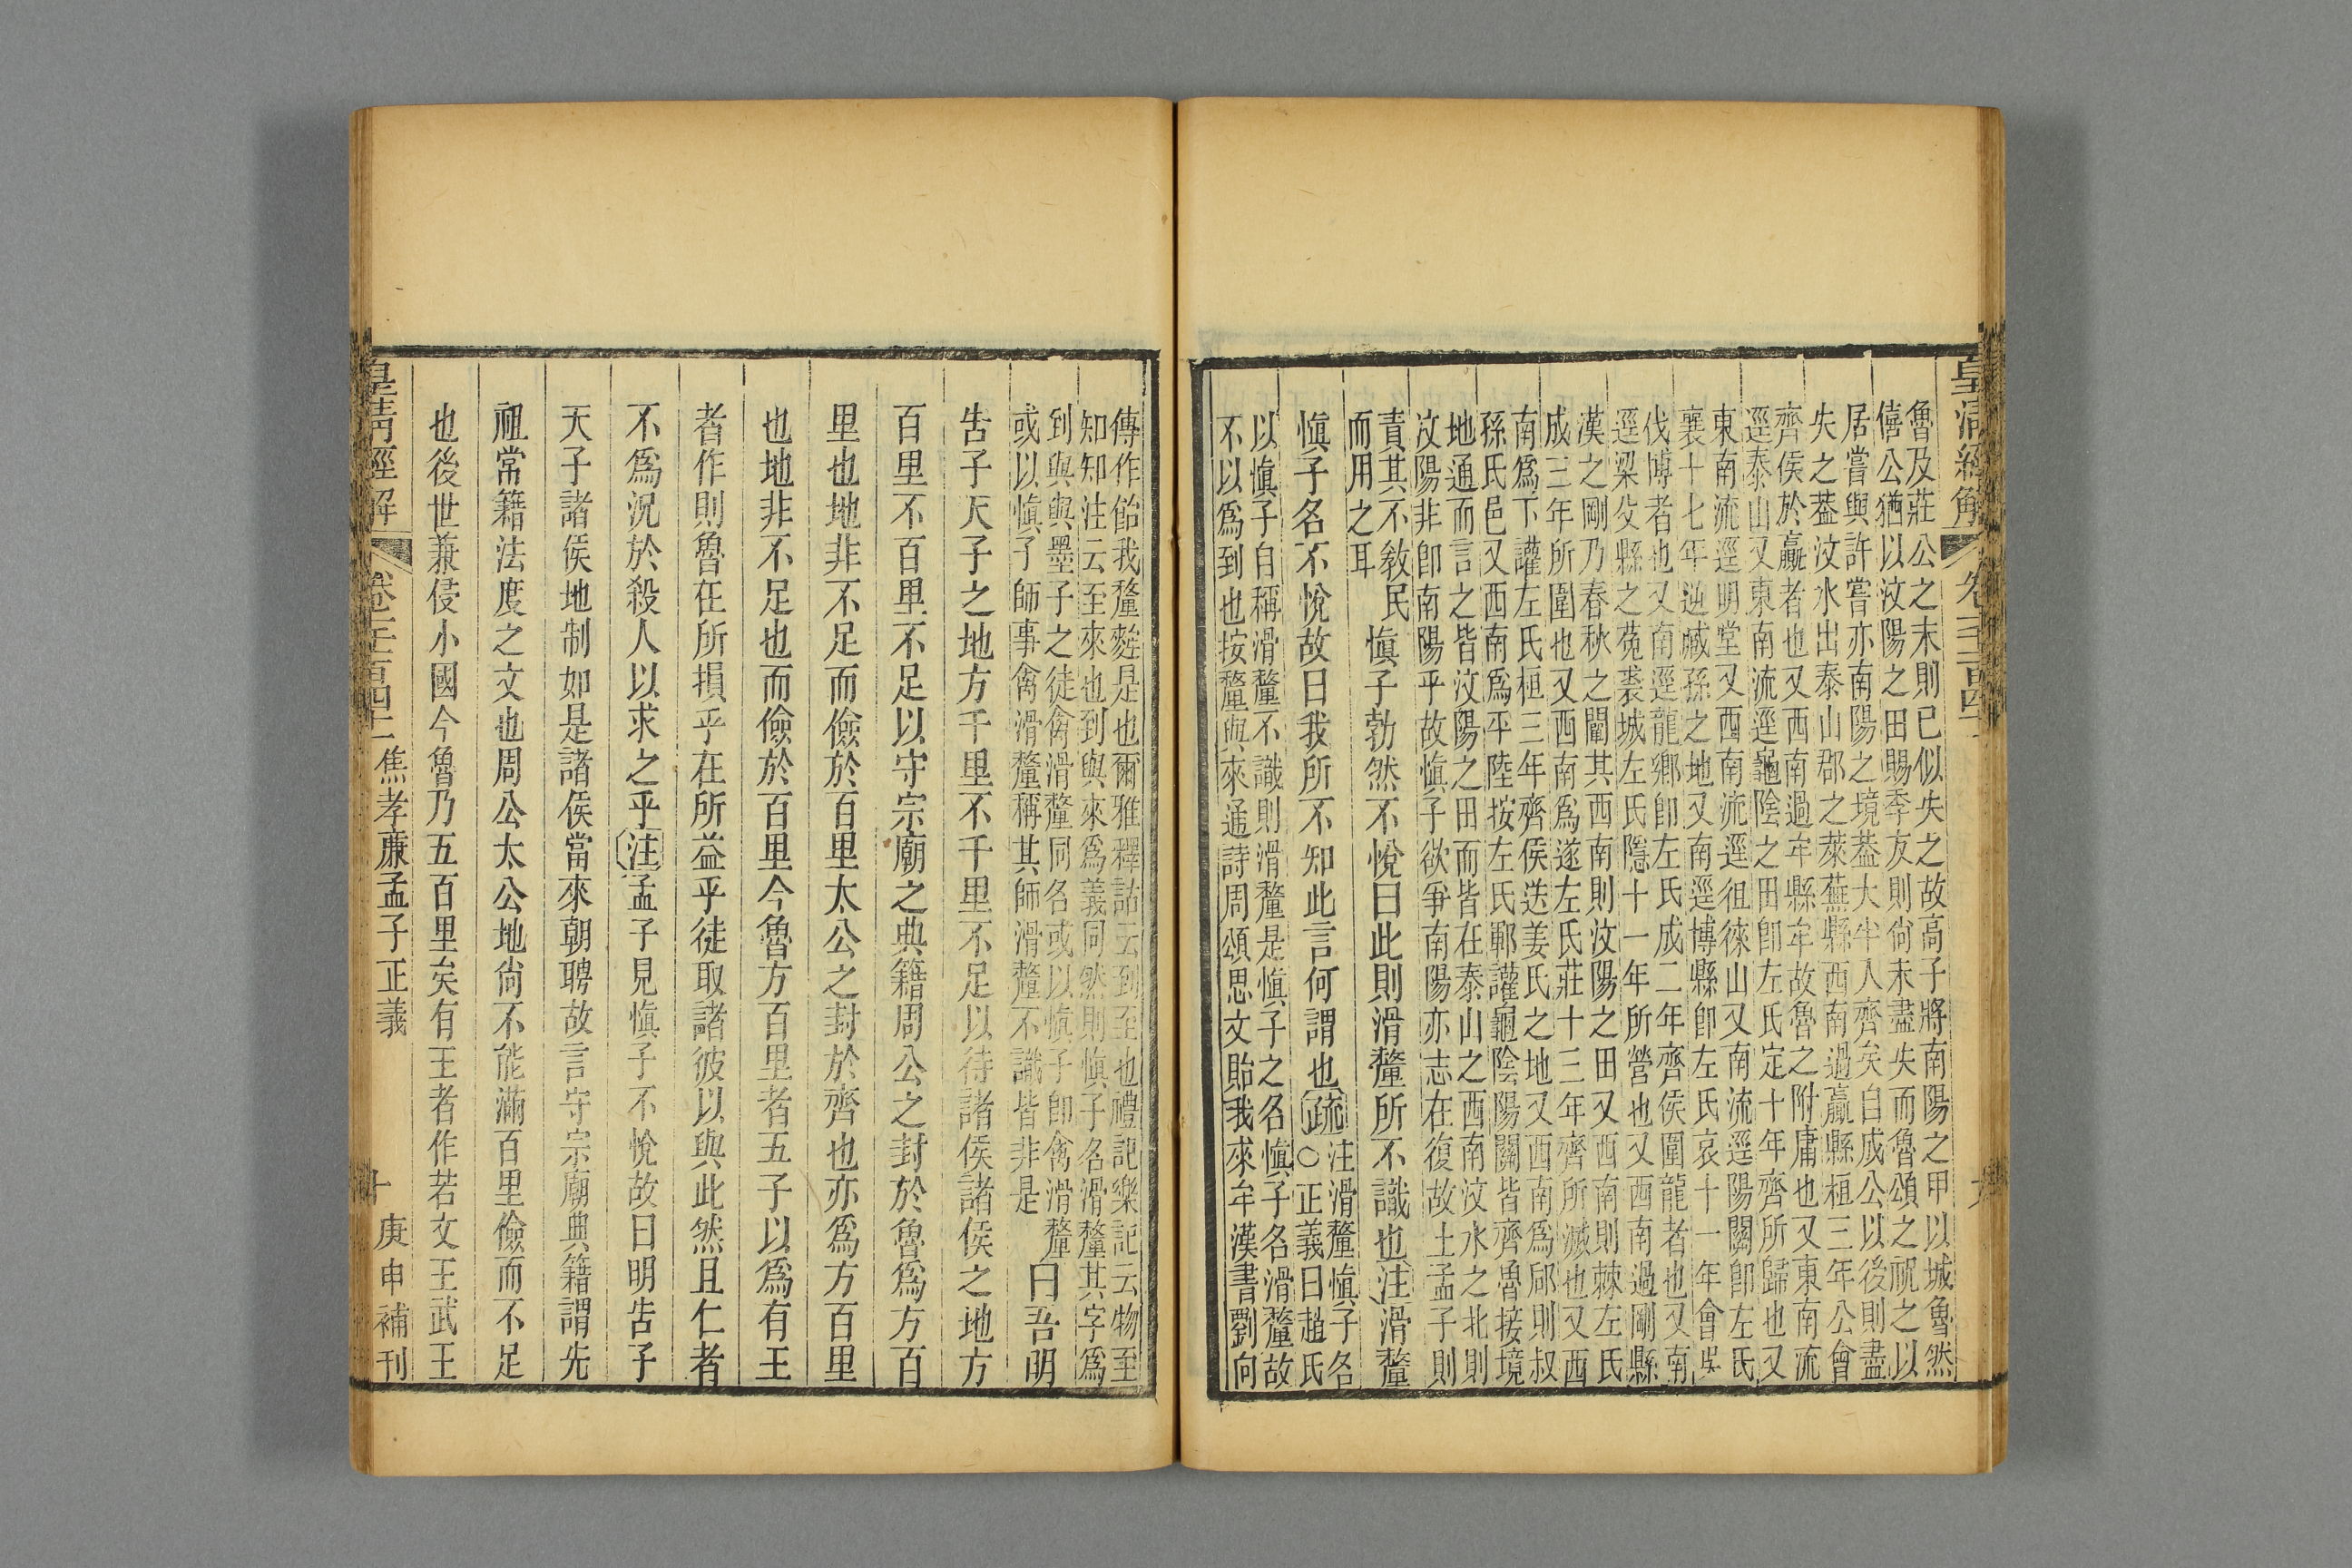 皇清經解
魯及莊公之末則已似失之故高子將南陽之甲以城魯然
僖公猶以汶陽之田賜季友則尙未盡失而魯頌之祝之以
居嘗與許嘗亦南陽之境葢大半入齊矣自成公以後則盡
失之葢汶水出泰山郡之萊蕪縣西南過嬴縣桓三年公會
齊侯於嬴者也又西南過牟縣牟故魯之附庸也又東南流
逕泰山又東南流逕龜陰之田卽左氏定十年齊所歸也又
東南流逕明堂又西南流逕徂徠山又南流逕陽關卽左氏
襄十七年逆臧孫之地又南逕博縣卽左氏哀十一年會吳
伐博者也又南逕龍鄉卽左氏成二年齊侯圍龍者也又南
逕梁父縣之菟裘城左氏隱十一年所營也又西南過剛縣
漢之剛乃春秋之闡其西南則汶陽之田又西南則棘左氏
成三年所圍也又西南爲遂左氏莊十三年齊所滅也又西
南爲下讙左氏桓三年齊侯送姜氏之地又西南爲郈則叔
孫氏邑又西南爲平陸按左氏鄆讙龜陰陽關皆齊魯接境
地通而言之皆汶陽之田而皆在泰山之西南汶水之北則
汶陽非卽南陽乎故愼子欲爭南陽亦志在復故土孟子則
責其不敎民
而用之耳
愼子勃然不悅曰此則滑釐所不識也注滑釐
愼子名不悅故曰我所不知此言何謂也疏
注滑釐愼子名
○正義曰趙氏
以愼子自稱滑釐不識則滑釐是愼子之名愼子名滑釐故
不以爲到也按釐與來通詩周頌思文貽我來牟漢書劉向
傳作飴我釐麰是也爾雅釋詁云到至也禮記樂記云物至
知知注云至來也到與來爲義同然則愼子名滑釐其字爲
到與與墨子之徒禽滑釐同名或以愼子卽禽滑釐
或以愼子師事禽滑釐稱其師滑釐不識皆非是
曰吾明
告子天子之地方千里不千里不足以待諸侯諸侯之地方
百里不百里不足以守宗廟之典籍周公之封於魯爲方百
里也地非不足而儉於百里太公之封於齊也亦爲方百里
也地非不足也而儉於百里今魯方百里者五子以爲有王
者作則魯在所損乎在所益乎徒取諸彼以與此然且仁者
不爲況於殺人以求之乎注孟子見愼子不悅故曰明告子
天子諸侯地制如是諸侯當來朝聘故言守宗廟典籍謂先
祖常籍法度之文也周公太公地尙不能滿百里儉而不足
也後世兼侵小國今魯乃五百里矣有王者作若文王武王
皇淸經解
焦孝廉孟子正義
十
庚申補刊